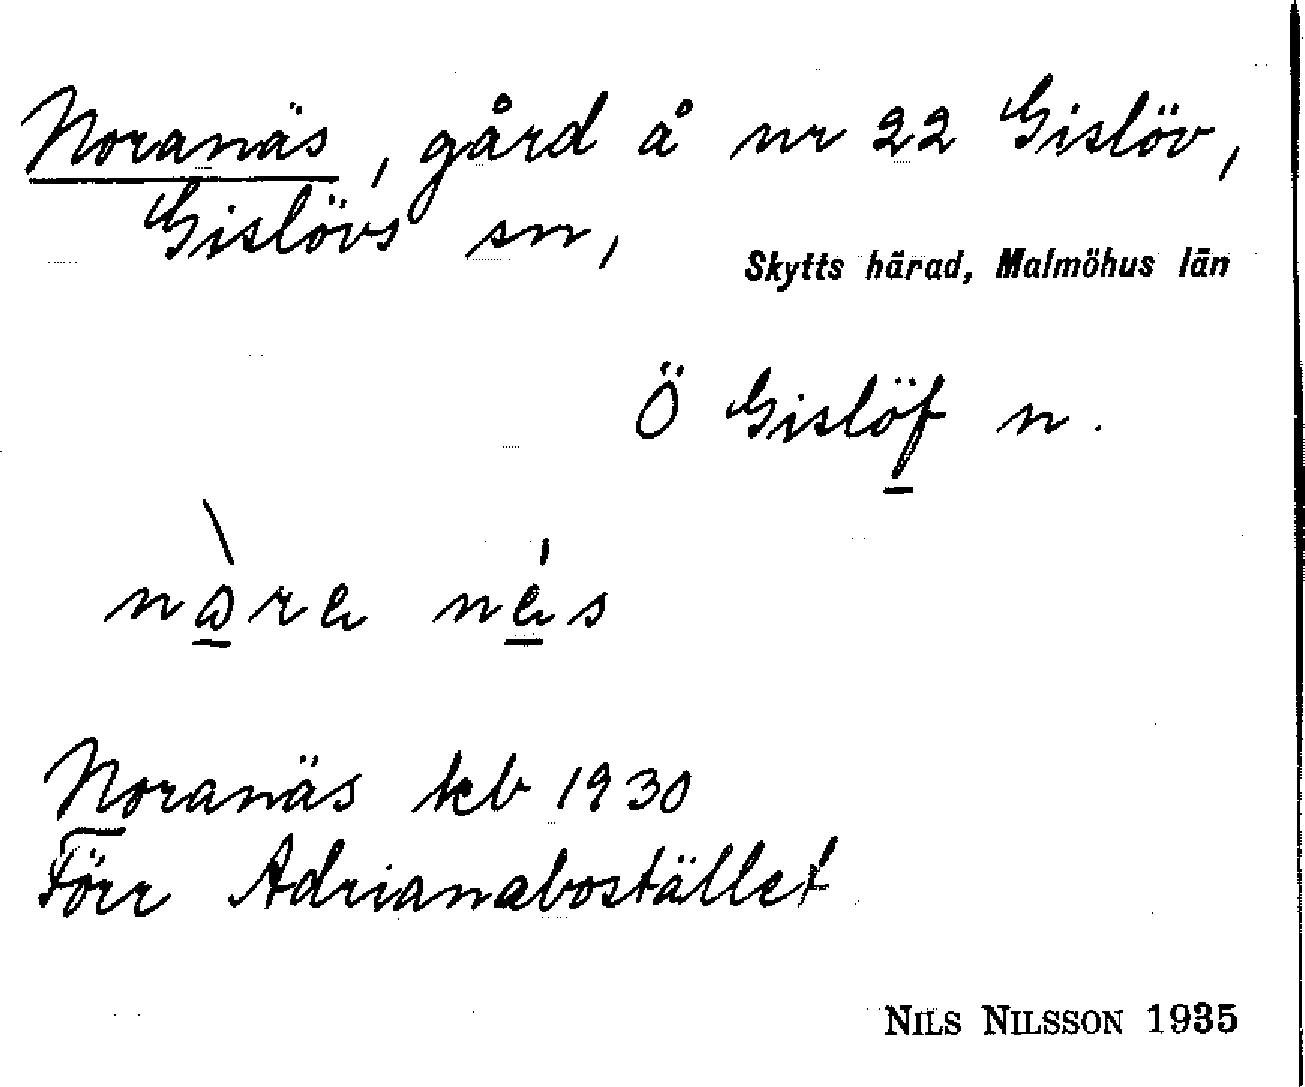 Noranäs, gård å nr 22 Gislöv,
Gislövs sn,
Skytts härad, Malmöhus län
Ö Gislöf n.
Noranäs kb 1930
Förr Adrianabostället
NILS NILSSON 1935